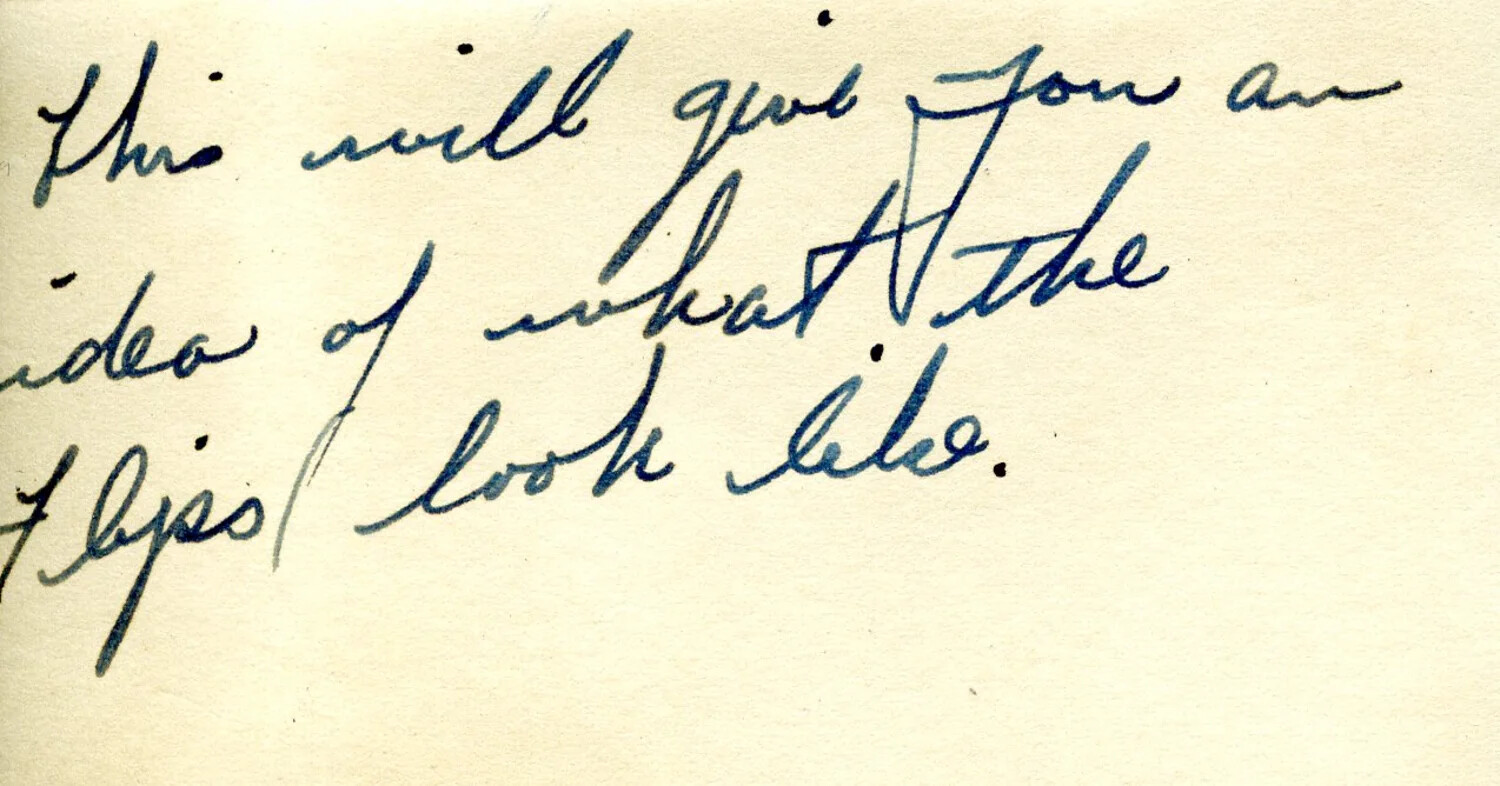 This will give you an
idea of what the
Flips look like.